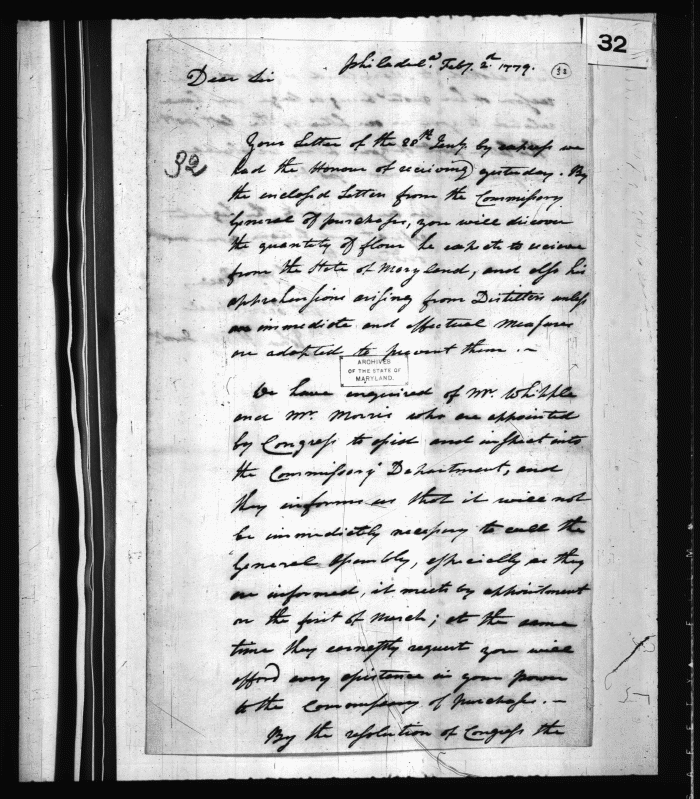 32
Philadel.ª Feby. 2.d 1779.
(32)
Dear Sir
32
Your Letter of the 28th Jany. by express we
had the Honour of receiving yesterday. By
the inclosed Letter from the Commissary
General of purchases, you will discover
the quantity of flour he expects to receive
from the State of Maryland, and also his
apprehensions arising from Distillers unless
an immediate and effectual Measures
are adopted to prevent them. —
ARCHIVES
OF THE STATE OF
MARYLAND.
We have enquired of Mr. Whipple
and Mr. Morris who are appointed
by Congress to assist and inspect into
the Commissary's Department, and
they inform us that it will not
be immediately necessary to call the
General Assembly, especially as they
are informed, it meets by appointment
on the first of March; at the same
time they earnestly request you will
afford every assistance in your power
to the Commissary of Purchases. —
By the resolution of Congress the